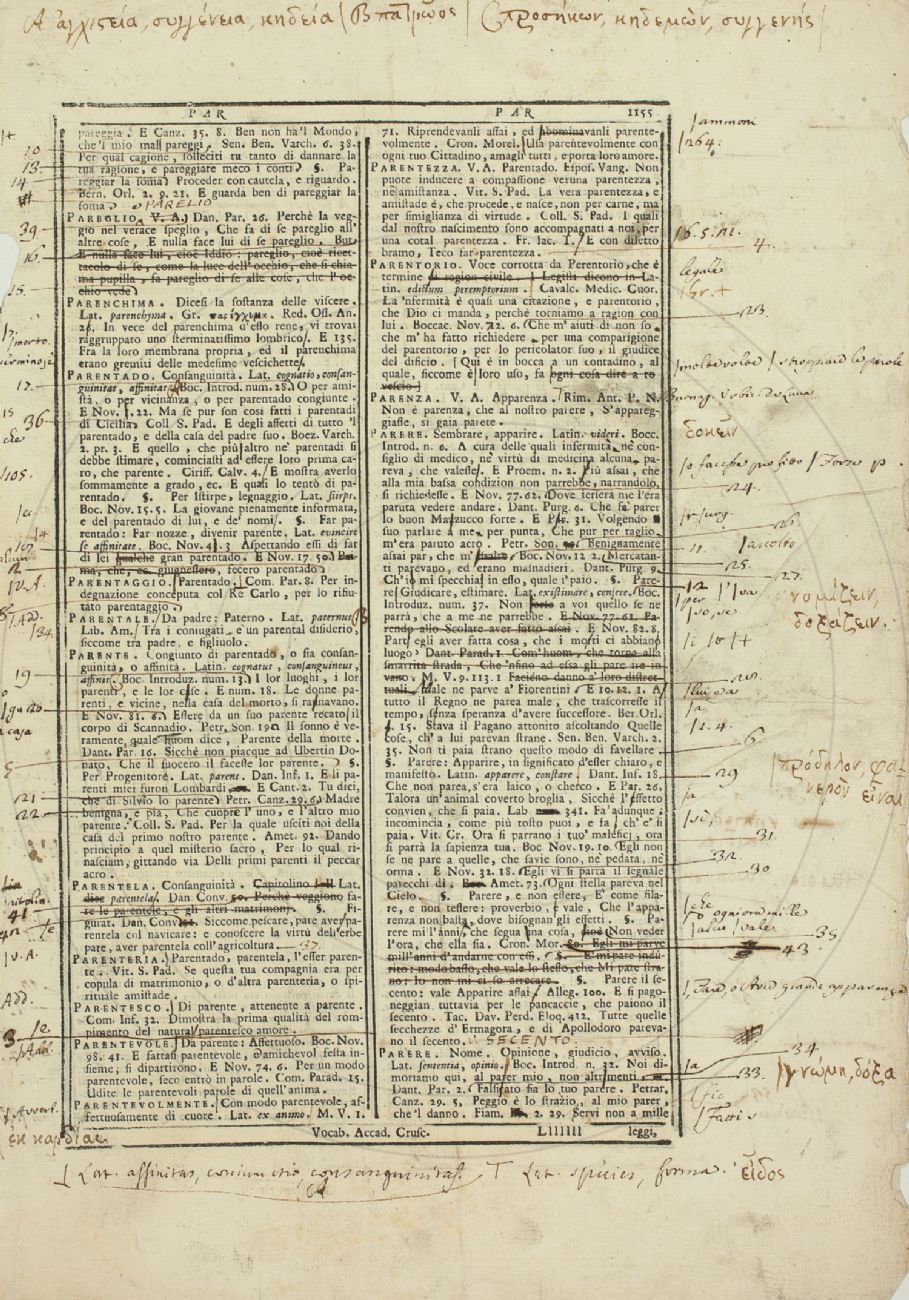 Α ἀγχιστεία, συγγένεια, κηδεία | Β πατρῷος | C προσήκων, κηδεμών, συγγενής |
PAR
pareggia. E Canz. 35. 8. Ben non ha'l Mondo,
che'l mio mal pareggi. Sen. Ben. Varch. 6. 38.
Per qual cagione, solleciti tu tanto di dannare la
tua ragione, e pareggiare meco i conti? §. Pa-
reggiar la soma. Proceder con cautela, e riguardo.
Bern. Orl. 2. 9. 21. E guarda ben di pareggiar la
soma. o PARELIO
PAREGLIO. V. A. Dan. Par. 26. Perchè la veg-
gio nel verace speglio, Che fa di se pareglio all'
altre cose, E nulla face lui di se pareglio. But.
E nulla face lui, cioè Iddio: pareglio, cioè ricet-
tacolo di se, come la luce dell'occhio, che si chia-
ma pupilla, fa pareglio di se alle cose, che l'oc-
chio vede.
PARENCHIMA. Dicesi la sostanza delle viscere.
Lat. parenchyma. Gr. παρέγχυμα. Red. Oss. An.
26. In vece del parenchima d'esso rene, vi trovai
raggruppato uno sterminatissimo lombrico. E 135.
Fra la loro membrana propria, ed il parenchima
erano gremiti delle medesime vescichette.
PARENTADO. Consanguinità. Lat. cognatio, consan-
guinitas, affinitas. Boc. Introd. num. 28. O per ami-
stà, o per vicinanza, o per parentado congiunte.
E Nov. 1. 22. Ma se pur son così fatti i parentadi
di Cicilia. Coll. S. Pad. E degli affetti di tutto 'l
parentado, e della casa del padre suo. Boez. Varch.
2. pr. 3. E quello, che più altro ne' parentadi si
debbe stimare, cominciasti ad essere loro prima ca-
ro, che parente. Ciriff. Calv. 4. E mostra averlo
sommamente a grado, ec. E quasi lo tentò di pa-
rentado. §. Per Istirpe, legnaggio. Lat. stirps.
Boc. Nov. 15. 5. La giovane pienamente informata,
e del parentado di lui, e de' nomi. §. Far pa-
rentado: Far nozze, divenir parente. Lat. evincire
se affinitate. Boc. Nov. 41. 3. Aspettando essi di far
di lei qualche gran parentado. E Nov. 17. 50. Pa-
ma, che, ec. giugnessero, fecero parentado.
PARENTAGGIO. Parentado. Com. Par. 8. Per in-
degnazione conceputa col Re Carlo, per lo rifiu-
tato parentaggio.
PARENTALE. Da padre: Paterno. Lat. paternus.
Lib. Am. Tra i coniugati, e un parental disiderio,
siccome tra padre, e figliuolo.
PARENTE. Congiunto di parentado, o sia consan-
guinità, o affinità. Latin. cognatus, consanguineus,
affinis. Boc. Introduz. num. 13. I lor luoghi, i lor
parenti, e le lor case. E num. 18. Le donne pa-
renti, e vicine, nella casa del morto, si raunavano.
E Nov. 81. 6. Essere da un suo parente recato il
corpo di Scannadio. Petr. Son. 191. Il sonno è ve-
ramente, quale huom dice, Parente della morte.
Dant. Par. 16. Sicchè non piacque ad Ubertin Do-
nato, Che il suocero il facesse lor parente. §.
Per Progenitore. Lat. parens. Dan. Inf. 1. E li pa-
renti miei furon Lombardi. E Cant. 2. Tu dici,
che di Silvio lo parente. Petr. Canz. 29. 6. Madre
benigna, e pia, Che cuopre l'uno, e l'altro mio
parente. Coll. S. Pad. Per la quale uscìti noi della
casa del primo nostro parente. Amet. 92. Dando
principio a quel misterio sacro, Per lo qual ri-
nasciam, gittando via Delli primi parenti il peccar
acro.
PARENTELA. Consanguinità. Capitolino Lat.
dice parentela. Dan. Conv. 50. Perchè veggiono fa-
re le parentele, e gli altri matrimonj. §. Fi-
gurat. Dan. Conv. Siccome pescare, pare aver pa-
rentela col navicare: e conoscere la virtù dell'erbe
pare, aver parentela coll'agricoltura. 37.
PARENTERIA. Parentado, parentela, l'esser paren-
te. Vit. S. Pad. Se questa tua compagnia era per
copula di matrimonio, o d'altra parenteria, o spi-
rituale amistade.
PARENTESCO. Di parente, attenente a parente.
Com. Inf. 32. Dimostra la prima qualità del rom-
pimento del natural parentesco amore.
PARENTEVOLE. Da parente: Affettuoso. Boc. Nov.
98. 41. E fattasi parentevole, e amichevol festa in-
sieme, si dipartirono. E Nov. 74. 6. Per un modo
parentevole, seco entrò in parole. Com. Parad. 15.
Udite le parentevoli parole di quell'anima.
PARENTEVOLMENTE. Con modo parentevole, af-
fettuosamente di cuore. Lat. ex animo. M. V. 1.
PAR 1155
71. Riprendevanli assai, ed abominavanli parente-
volmente. Cron. Morel. Usa parentevolmente con
ogni tuo Cittadino, amagli tutti, e porta loro amore.
PARENTEZZA. V. A. Parentado. Espos. Vang. Non
puote inducere a compassione veruna parentezza,
nè amistanza. Vit. S. Pad. La vera parentezza, e
amistade è, che procede, e nasce, non per carne, ma
per simiglianza di virtude. Coll. S. Pad. I quali
dal nostro nascimento sono accompagnati a noi, per
una cotal parentezza. Fr. Iac. T. E con diletto
bramo, Teco far parentezza.
PARENTORIO. Voce corrotta da Perentorio, che è
termine di ragion civile. I Legisti dicono in La-
tin. edictum peremptorium. Cavalc. Medic. Cuor.
La 'nfermità è quasi una citazione, e parentorio,
che Dio ci manda, perchè torniamo a ragion con
lui. Boccac. Nov. 72. 6. Che m'aiuti di non so,
che m'ha fatto richiedere, per una comparigione
del parentorio, per lo pericolator suo, il giudice
del dificio. [Qui è in bocca a un contadino, al
quale, siccome è loro uso, fa ogni cosa dire a ro-
vescio]
PARENZA. V. A. Apparenza. Rim. Ant. P. N.
Non è parenza, che al nostro paiere, S'appareg-
giasse, sì gaia paiete.
PARERE. Sembrare, apparire. Latin. videri. Bocc.
Introd. n. 6. A cura delle quali infermità, nè con-
siglio di medico, nè virtù di medicina alcuna, pa-
reva, che valesse. E Proem. n. 2. Più assai, che
alla mia bassa condizion non parrebbe, narrandolo,
si richiedesse. E Nov. 77. 62. Dove teriera me l'era
paruta vedere andare. Dant. Purg. 6. Che fa parer
lo buon Marzucco forte. E Par. 31. Volgendo
suo parlare a me, per punta, Che pur per taglio
m'era paruto acro. Petr. Son. Benignamente
assai par, che m'ascolte. Boc. Nov. 12. 2. Mercatan-
ti parevano, ed erano masnadieri. Dant. Purg. 9.
Ch'io mi specchiai in esso, quale i' paio. §. Pare-
re: Giudicare, estimare. Lat. existimare, censere. Boc.
Introduz. num. 37. Non forse a voi quello se ne
parrà, che a me ne parrebbe. E Nov. 77. 61. Pa-
rendo allo Scolare aver fatto assai. E Nov. 82. 8.
Parti egli aver fatta cosa, che i mosti ci abbiano
luogo? Dant. Parad. 1. Com'huom, che torna alla
smarrita strada, Che 'nfino ad essa gli pare ire in
vano. M. V. 9. 113. 1. Facieno danno a' loro distret-
tuali. Male ne parve a' Fiorentini. E 10. 12. 1. A
tutto il Regno ne parea male, che trascorresse il
tempo, senza speranza d'avere successore. Ber. Orl.
1. 15. Stava il Pagano attonito ascoltando Quelle
cose, ch'a lui parevan strane. Sen. Ben. Varch. 2.
35. Non ti paia strano questo modo di favellare.
§. Parere: Apparire, in significato d'esser chiaro, e
manifesto. Latin. apparere, constare. Dant. Inf. 18.
Che non parea, s'era laico, o cherco. E Par. 26.
Talora un'animal coverto broglia, Sicchè l'effetto
convien, che si paia. Lab. 341. Fa' adunque:
incomincia, come più tosto puoi, e fa, ch'e' si
paia. Vit. Cr. Ora si parrano i tuo' malefici, ora
si parrà la sapienza tua. Boc. Nov. 19. 10. Egli non
se ne pare a quelle, che savie sono, nè pedata, nè
orma. E Nov. 32. 18. Egli vi si parrà il segnale
parecchi dì. Amet. 73. Ogni stella pareva nel
Cielo. §. Parere, e non essere, E' come fila-
re, e non tessere: proverbio, vale, Che l'appa-
renza non basta, dove bisognan gli effetti. §. Pa-
rere mi l'anni, che segua una cosa, cioè Non veder
l'ora, che ella sia. Cron. Mor. 80. Egli mi parve
mill'anni d'andarne con essi. §. E' mi pare indu-
rito: modo basso, che vale lo stesso, che Mi pare stra-
no: Io non mi ci so arrecare. §. Parere il se-
cento: vale Apparire assai. Alleg. 100. E si pago-
neggian tuttavia per le pancaccie, che paiono il
secento. Tac. Dav. Perd. Eloq. 412. Tutte quelle
secchezze d'Ermagora, e di Apollodoro pareva-
no il secento. SECENTO.
PARERE. Nome. Opinione, giudicio, avviso.
Lat. sententia, opinio. Boc. Introd. n. 32. Noi di-
moriamo qui, al parer mio, non altrimenti
Dant. Par. 26. Falsificato fia lo tuo parere. Petrar.
Canz. 29. 5. Peggio è lo strazio, al mio parer,
che'l danno. Fiam. 2. 29. Servi non a mille
Vocab. Accad. Crusc. Llllll leggi,
10
13.
14
39.
16.
15.
17.
36
105.
V. A.
19
5
21
22
41
V. A.
Add.
3
ἐκ καρδίας
Iammoni
264.
16.5.n2.
4.
legale
Gr. +
23.
δοκεῖν
24.
26.
ascolto
25.
27.
νομίζειν,
δοξάζειν.
20.
6
πρόδηλον, φα-
νερὸν εἶναι
29
31.
32.
30
35
43.
34.
33.
γνώμη, δόξα
⊥ Lat. affinitas, coniunctio, consanguinitas. T Lat. species, forma. εἶδος